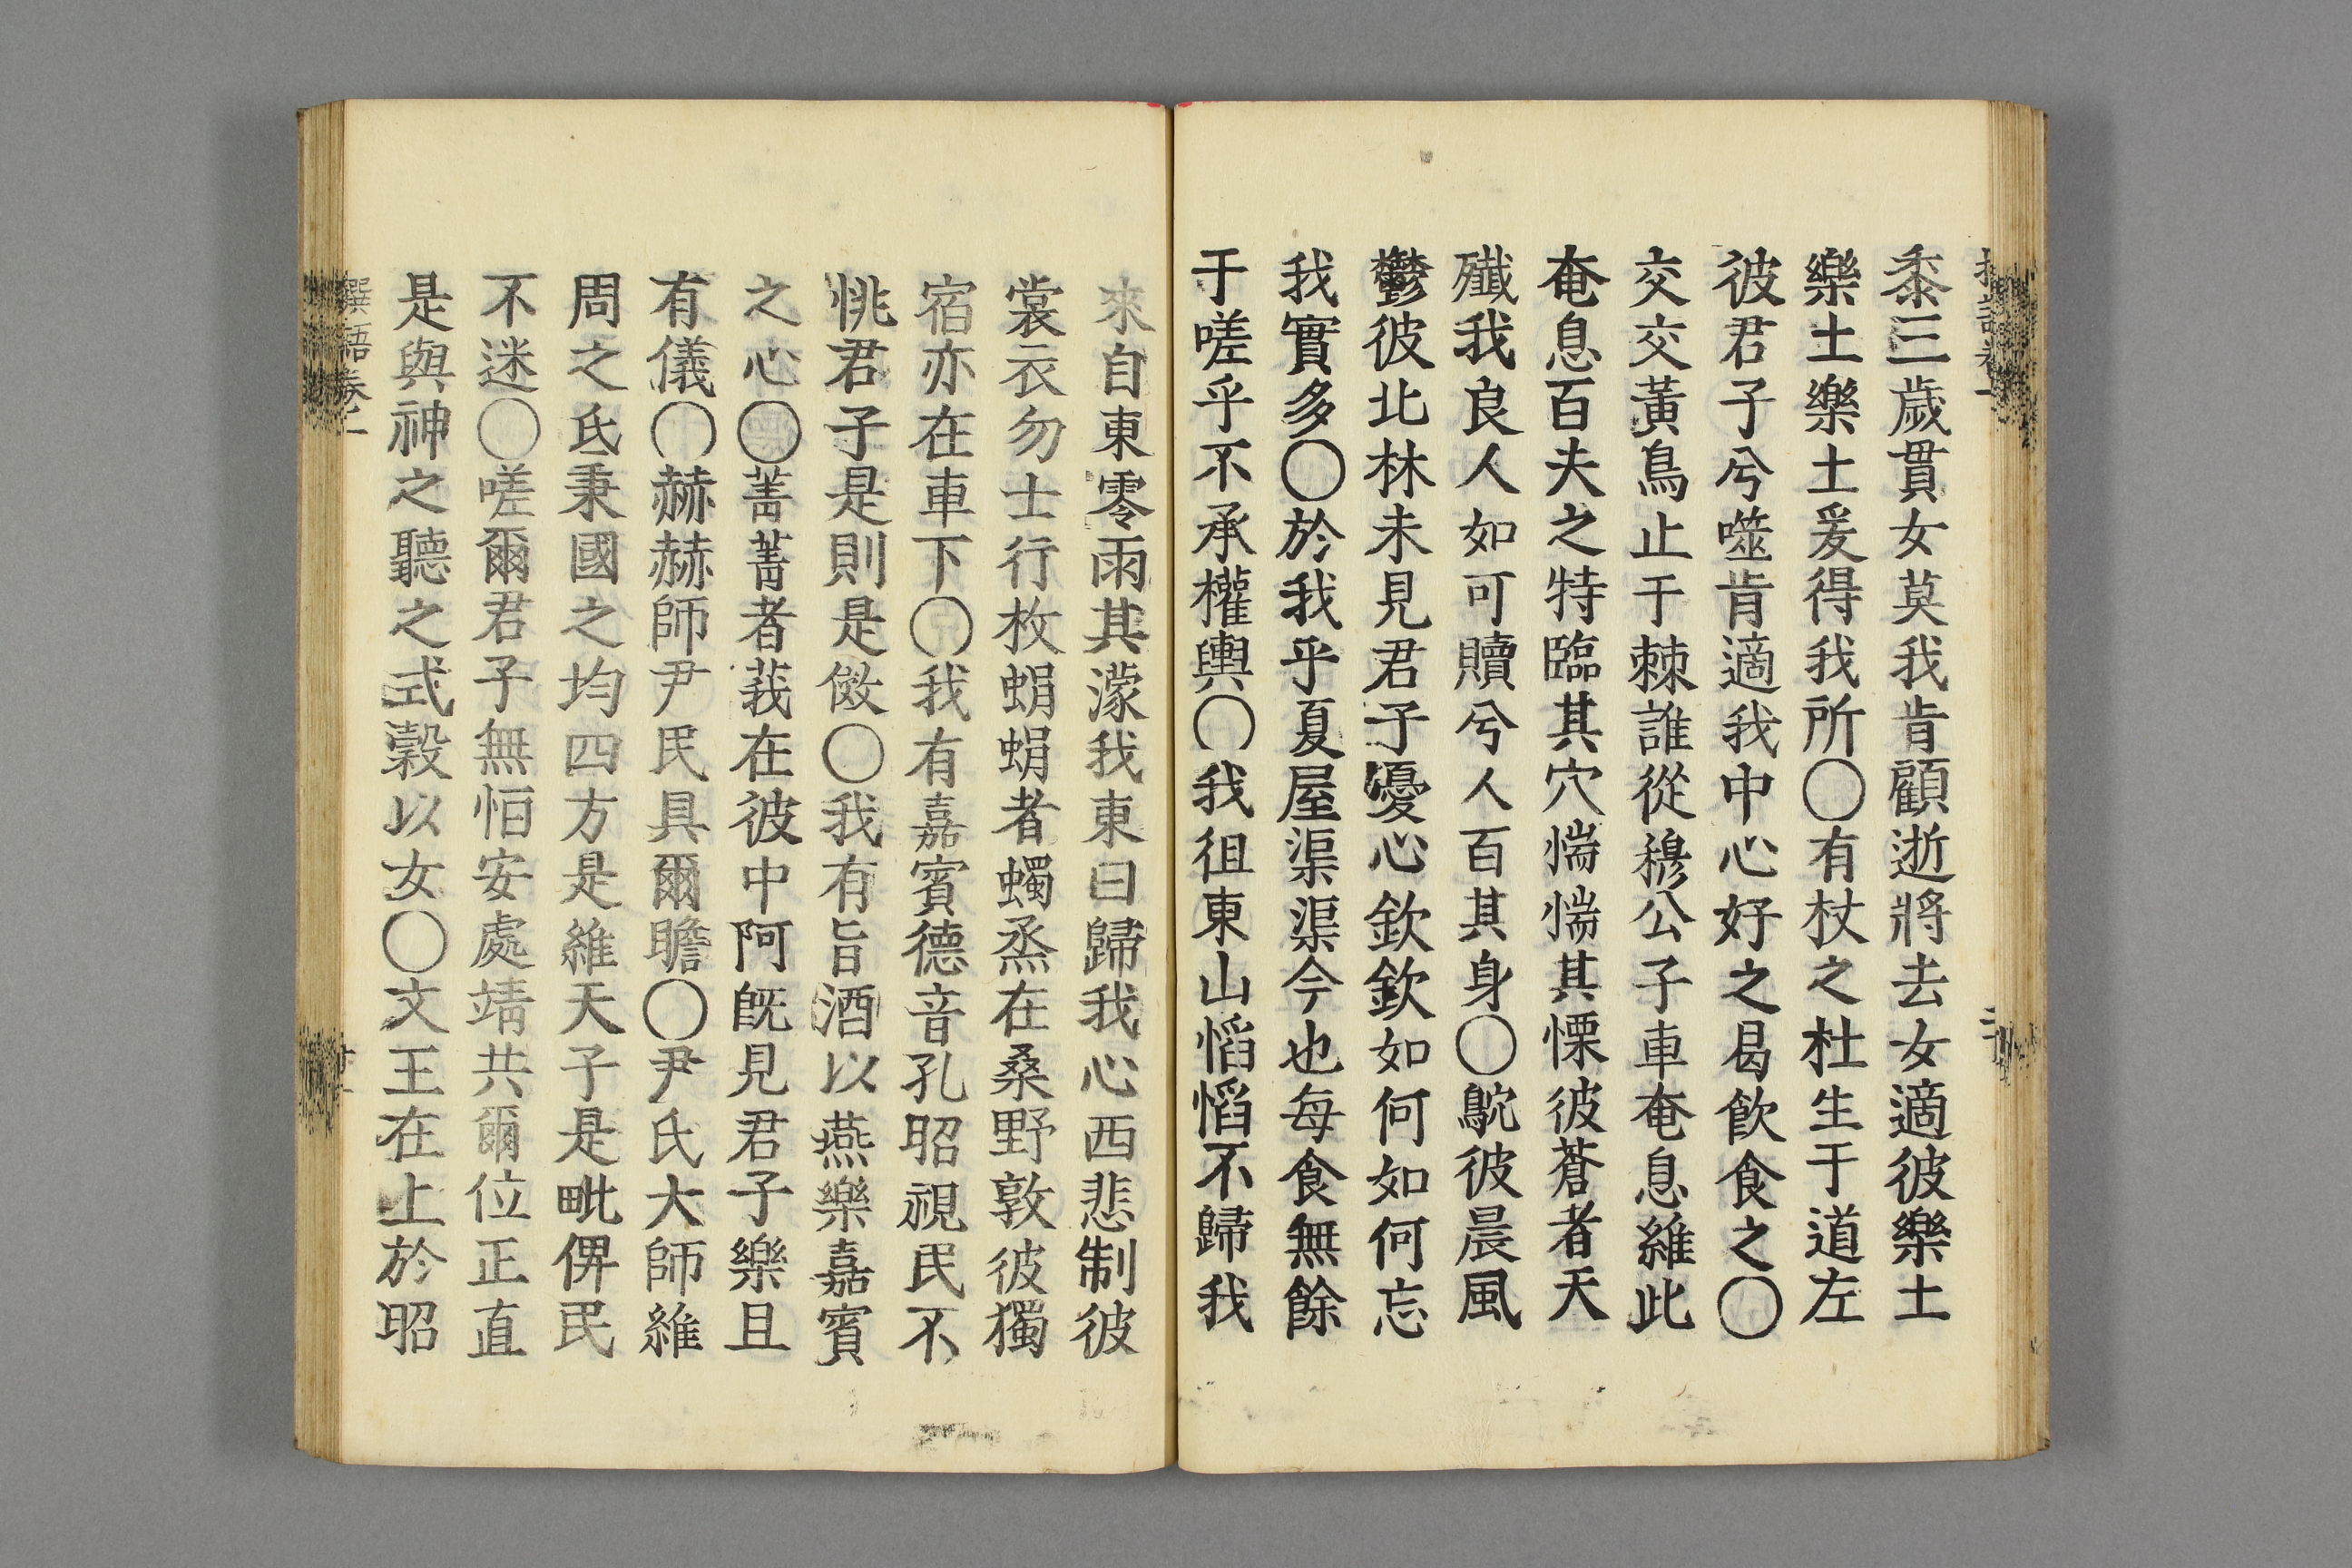 黍三歲貫女莫我肯顧逝將去女適彼樂土
樂土樂土爰得我所〇有杕之杜生于道左
彼君子兮噬肯適我中心好之曷飲食之〇
交交黃鳥止于棘誰從穆公子車奄息維此
奄息百夫之特臨其穴惴惴其慄彼蒼者天
殲我良人如可贖兮人百其身〇鴥彼晨風
鬱彼北林未見君子憂心欽欽如何如何忘
我實多〇於我乎夏屋渠渠今也每食無餘
于嗟乎不承權輿〇我徂東山慆慆不歸我
來自東零雨其濛我東曰歸我心西悲制彼
裳衣勿士行枚蜎蜎者蠋烝在桑野敦彼獨
宿亦在車下〇我有嘉賓德音孔昭視民不
恌君子是則是傚〇我有旨酒以燕樂嘉賓
之心〇菁菁者莪在彼中阿旣見君子樂且
有儀〇赫赫師尹民具爾瞻〇尹氏大師維
周之氐秉國之均四方是維天子是毗俾民
不迷〇嗟爾君子無恒安處靖共爾位正直
是與神之聽之式穀以女〇文王在上於昭